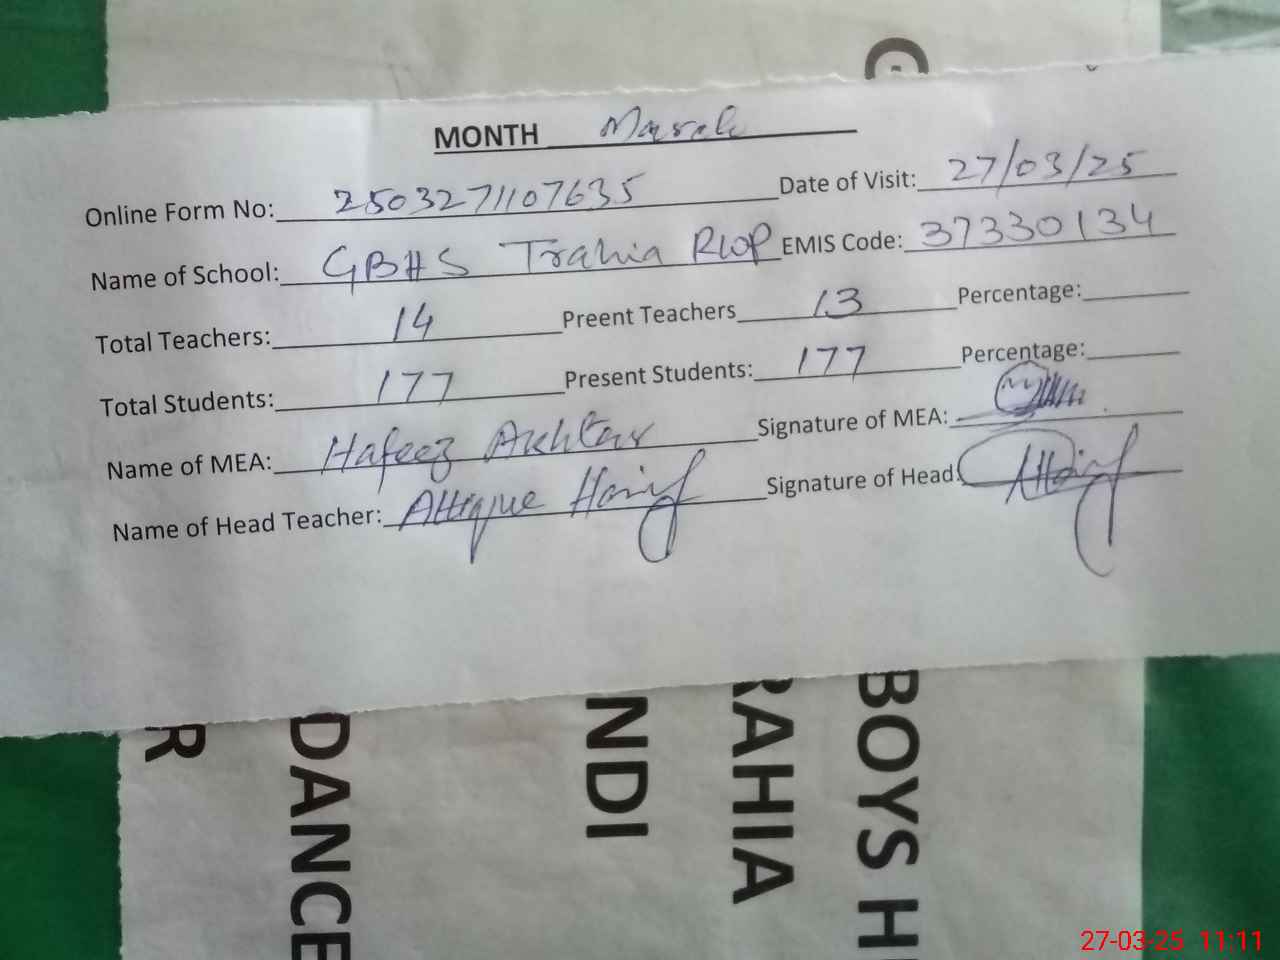 MONTH March
Online Form No: 2503271107635 Date of Visit: 27/03/25
Name of School: GBHS Trahia RWP EMIS Code: 37330134
Total Teachers: 14 Preent Teachers 13 Percentage:
Total Students: 177 Present Students: 177 Percentage:
Name of MEA: Hafeez Akhtar Signature of MEA:
Name of Head Teacher: Attique Hanif Signature of Head
BOYS H
RAHIA
NDI
DANCE
R
27-03-25 11:11